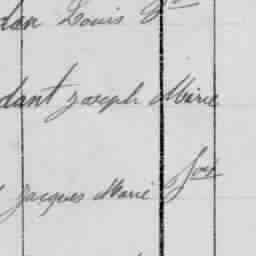 dan Louis
dant Joseph Marie
Jacques Marie Jos